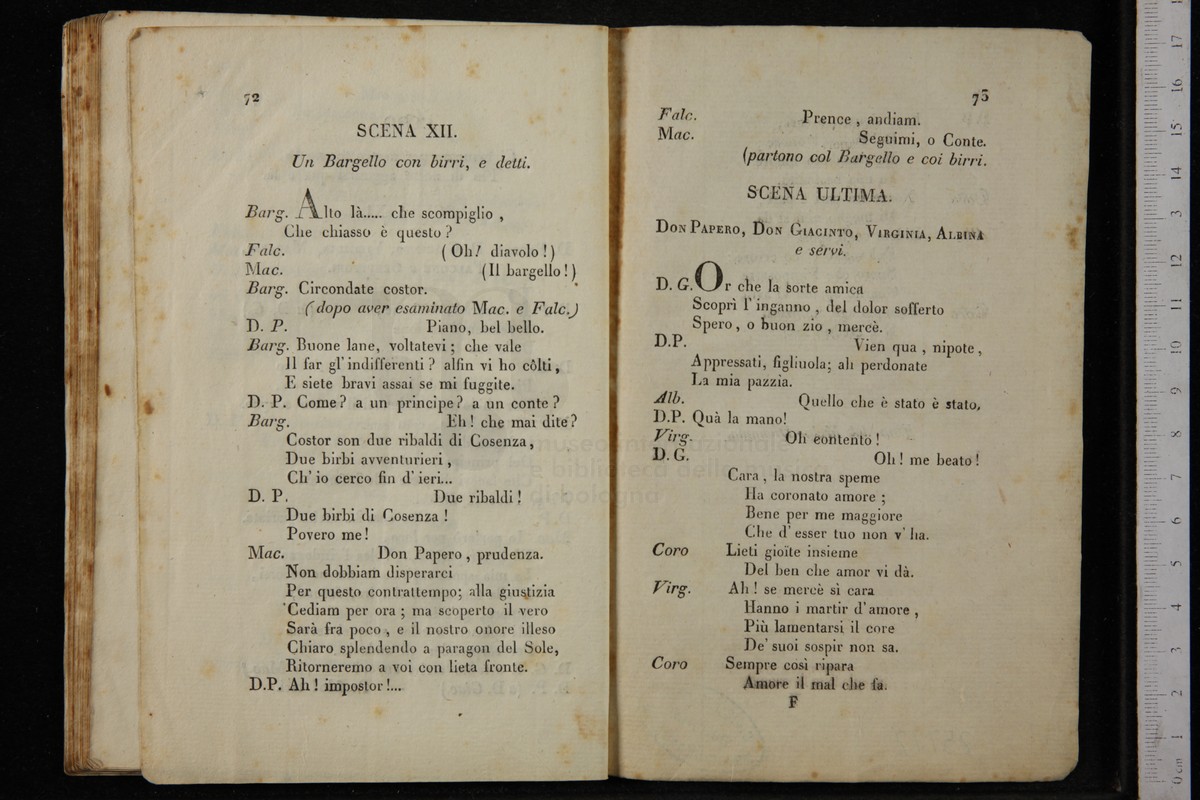 72
SCENA XII.
Un Bargello con birri, e detti.
Barg. Alto là..... che scompiglio ,
Che chiasso è questo ?
Falc. ( Oh! diavolo ! )
Mac. (Il bargello ! )
Barg. Circondate costor.
( dopo aver esaminato Mac. e Falc.)
D. P. Piano, bel bello.
Barg. Buone lane, voltatevi ; che vale
Il far gl' indifferenti ? alfin vi ho côlti ,
E siete bravi assai se mi fuggite.
D. P. Come ? a un principe ? a un conte ?
Barg. Eh ! che mai dite ?
Costor son due ribaldi di Cosenza ,
Due birbi avventurieri ,
Ch' io cerco fin d' ieri...
D. P. Due ribaldi !
Due birbi di Cosenza !
Povero me !
Mac. Don Papero , prudenza.
Non dobbiam disperarci
Per questo contrattempo; alla giustizia
Cediam per ora ; ma scoperto il vero
Sarà fra poco , e il nostro onore illeso
Chiaro splendendo a paragon del Sole,
Ritorneremo a voi con lieta fronte.
D.P. Ah ! impostor !...
73
Falc. Prence , andiam.
Mac. Seguimi, o Conte.
(partono col Bargello e coi birri.
SCENA ULTIMA.
DON PAPERO, DON GIACINTO, VIRGINIA, ALBINA
e servi.
D. G. Or che la sorte amica
Scoprì l' inganno , del dolor sofferto
Spero , o buon zio , mercè.
D.P. Vien qua , nipote ,
Appressati, figliuola; ah perdonate
La mia pazzia.
Alb. Quello che è stato è stato.
D.P. Quà la mano!
Virg. Oh contento !
D. G. Oh ! me beato !
Cara , la nostra speme
Ha coronato amore ;
Bene per me maggiore
Che d' esser tuo non v' ha.
Coro Lieti gioite insieme
Del ben che amor vi dà.
Virg. Ah ! se mercè sì cara
Hanno i martir d' amore ,
Più lamentarsi il core
De' suoi sospir non sa.
Coro Sempre così ripara
Amore il mal che fa.
F
museo internazionale
e biblioteca della musica
di bologna
0 cm 1 2 3 4 5 6 7 8 9 10 11 12 13 14 15 16 17